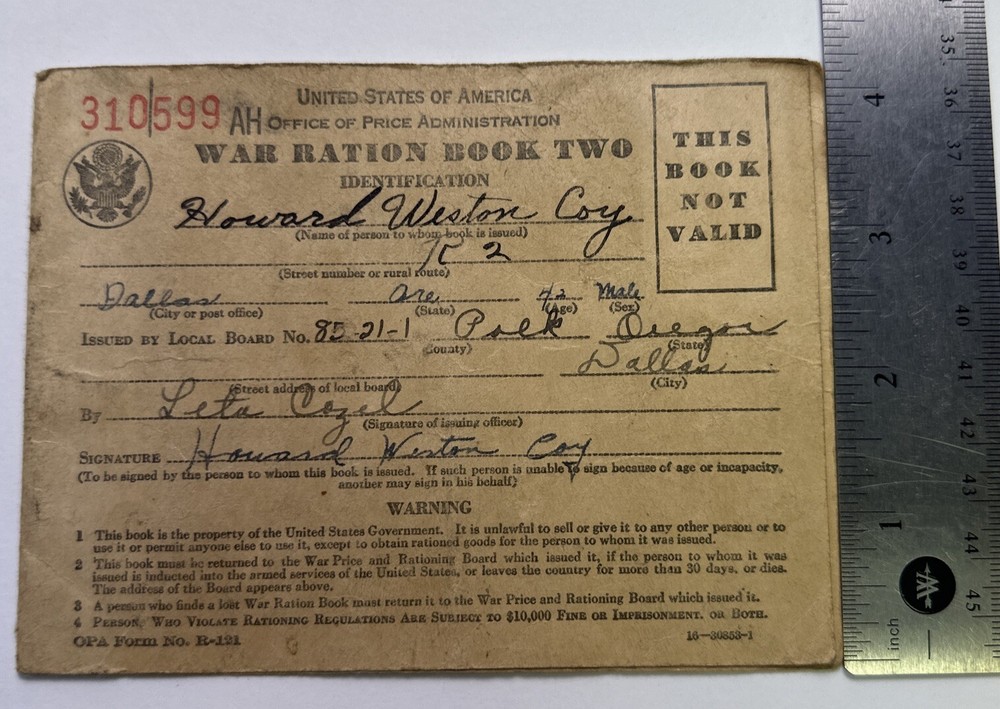 310599 AH
UNITED STATES OF AMERICA
OFFICE OF PRICE ADMINISTRATION
WAR RATION BOOK TWO
IDENTIFICATION
THIS
BOOK
NOT
VALID
Howard Weston Coy
(Name of person to whom book is issued)
R 2
(Street number or rural route)
Dallas Ore 42 Male
(City or post office) (State) (Age) (Sex)
ISSUED BY LOCAL BOARD No. 85-21-1 Polk Oregon
(County) (State)
Dallas
(Street address of local board) (City)
By Leta Cozel
(Signature of issuing officer)
SIGNATURE Howard Weston Coy
(To be signed by the person to whom this book is issued. If such person is unable to sign because of age or incapacity,
another may sign in his behalf)
WARNING
1 This book is the property of the United States Government. It is unlawful to sell or give it to any other person or to
use it or permit anyone else to use it, except to obtain rationed goods for the person to whom it was issued.
2 This book must be returned to the War Price and Rationing Board which issued it, if the person to whom it was
issued is inducted into the armed services of the United States, or leaves the country for more than 30 days, or dies.
The address of the Board appears above.
3 A person who finds a lost War Ration Book must return it to the War Price and Rationing Board which issued it.
4 PERSONS WHO VIOLATE RATIONING REGULATIONS ARE SUBJECT TO $10,000 FINE OR IMPRISONMENT, OR BOTH.
OPA Form No. R-121 16-30853-1
35
36
37
38
39
40
41
42
43
44
45
4
3
2
1
inch
W